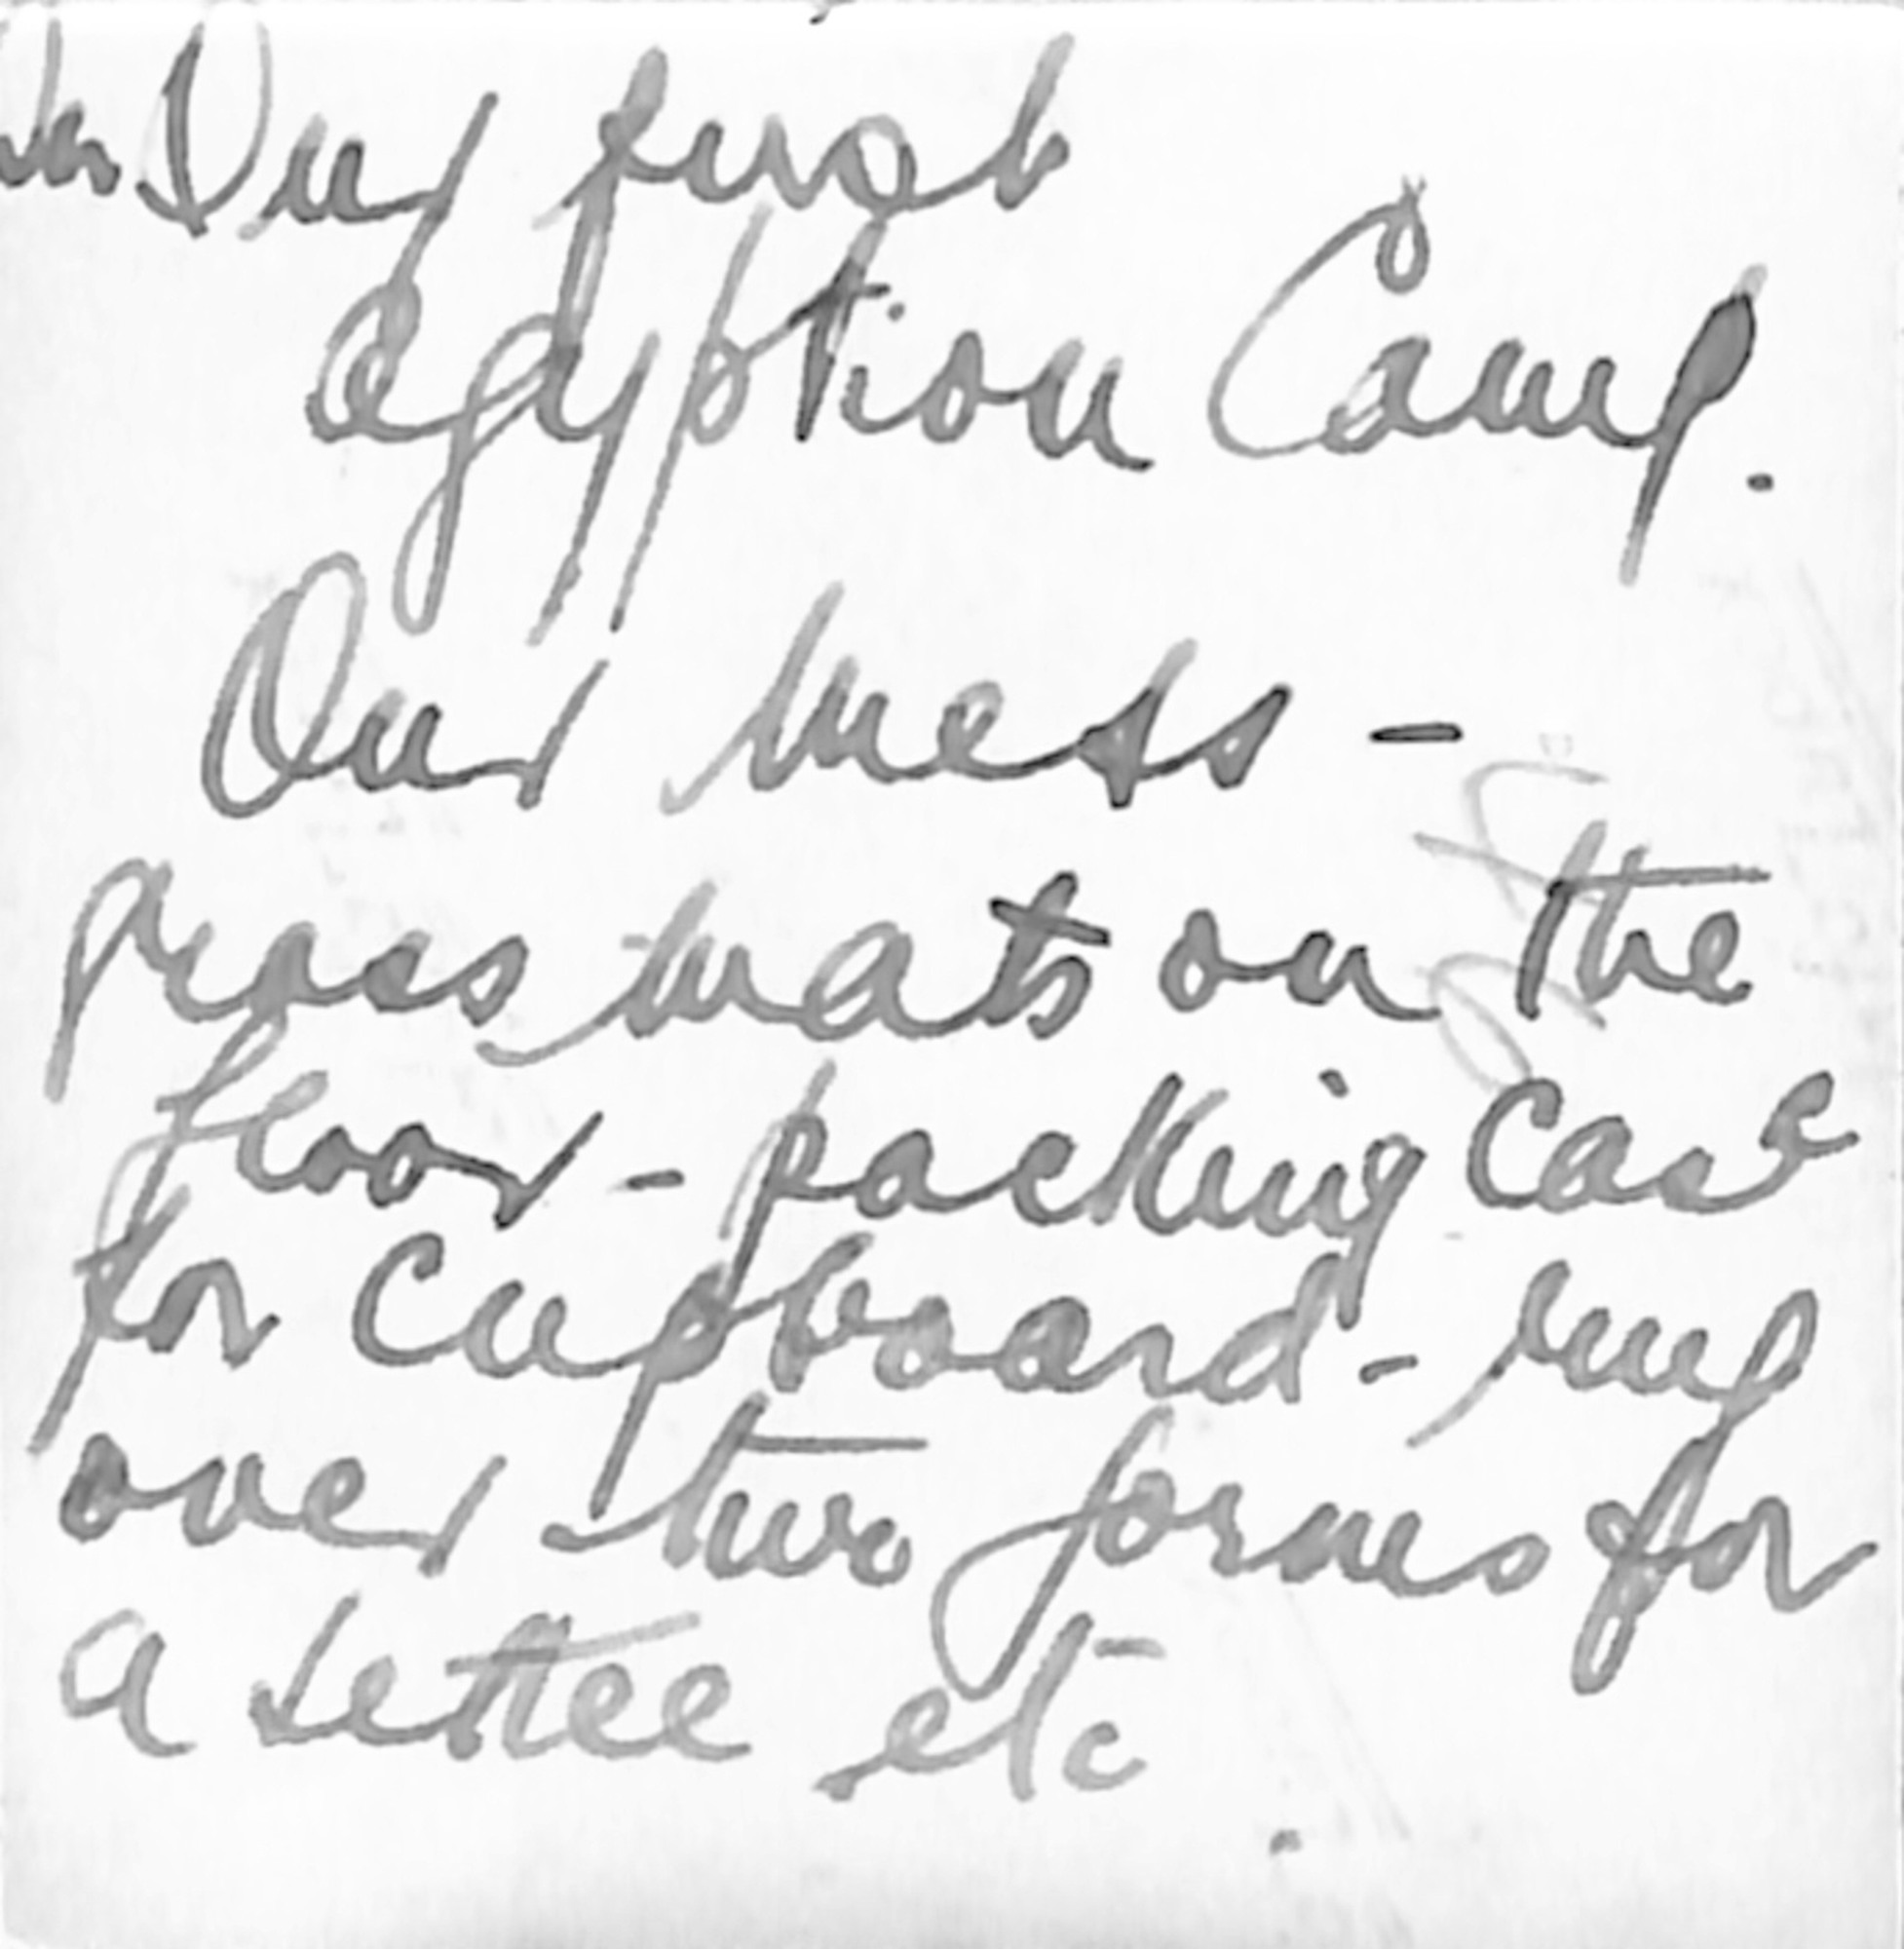 Our first
Egyption Camp.
Our Mess -
grass mats on the
floor - packing case
for cupboard - rug
over two forms for
a settee etc